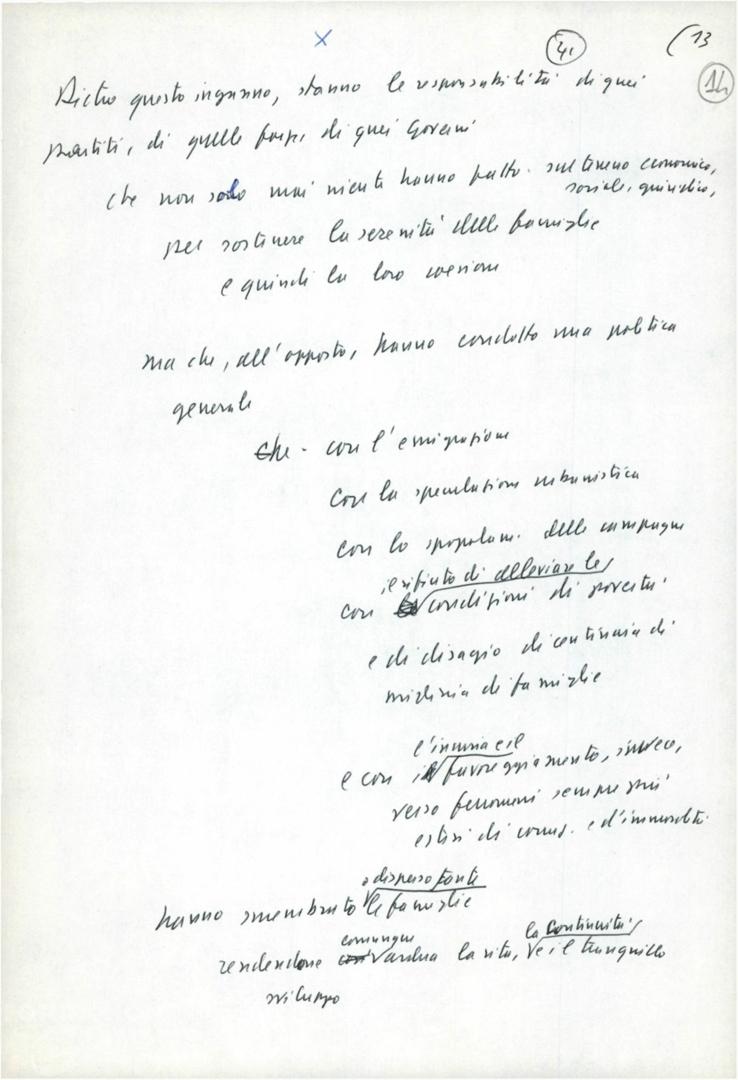 X 41 (13
14
Dietro questo inganno, stanno le responsabilità di quei
partiti, di quelle forze, di quei Governi
che non solo mai niente hanno fatto sul terreno economico,
sociale, giuridico,
per sostenere la serenità delle famiglie
e quindi la loro coesione
ma che, all'opposto, hanno condotto una politica
generale
che - con l'emigrazione
con la speculazione urbanistica
con lo spopolam. delle campagne
il rifiuto di alleviare le
con condizioni di povertà
e di disagio di centinaia di
migliaia di famiglie
l'incuria e il
e con favoreggiamento, invece,
verso fenomeni sempre più
estesi di corruz. e d'immoralità
disperso tante
hanno smembrato le famiglie
comunque la continuità
rendendone ardua la vita, e il tranquillo
sviluppo